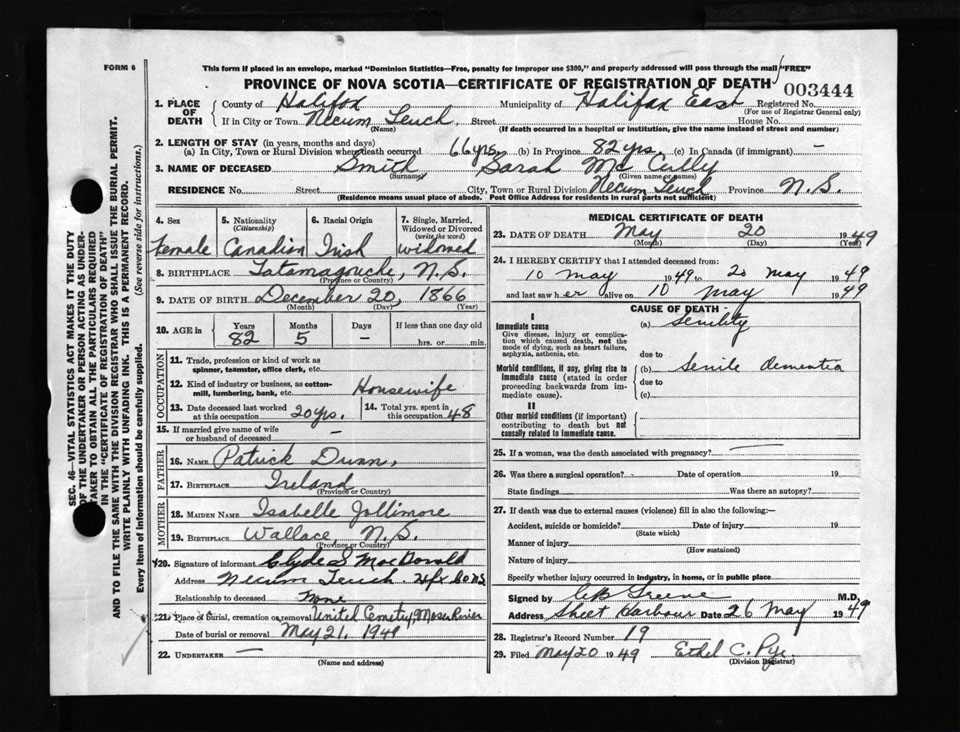 FORM 6
This form if placed in an envelope, marked "Dominion Statistics—Free, penalty for improper use $300," and properly addressed will pass through the mail "FREE"
PROVINCE OF NOVA SCOTIA—CERTIFICATE OF REGISTRATION OF DEATH
003444
1. PLACE OF DEATH
County of Halifax Municipality of Halifax East Registered No.
(For use of Registrar General only)
If in City or Town Necum Teuch Street House No.
(Name) (If death occurred in a hospital or institution, give the name instead of street and number)
2. LENGTH OF STAY (in years, months and days)
(a) In City, Town or Rural Division where death occurred 66 yrs. (b) In Province 82 yrs. (c) In Canada (if immigrant) -
3. NAME OF DECEASED Smith Sarah Mc Cully
(Surname) (Given name or names)
RESIDENCE No. Street City, Town or Rural Division Necum Teuch Province N.S.
(Residence means usual place of abode. Post Office Address for residents in rural parts not sufficient)
4. Sex Female
5. Nationality (Citizenship) Canadian
6. Racial Origin Irish
7. Single, Married, Widowed or Divorced (write the word) widowed
8. BIRTHPLACE Tatamagouche, N.S.
(Province or Country)
9. DATE OF BIRTH December 20, 1866
(Month) (Day) (Year)
10. AGE in Years 82 Months 5 Days - If less than one day old hrs. or min.
OCCUPATION
11. Trade, profession or kind of work as spinner, teamster, office clerk, etc.
12. Kind of industry or business, as cotton-mill, lumbering, bank, etc. Housewife
13. Date deceased last worked at this occupation 20 yrs.
14. Total yrs. spent in this occupation 48
15. If married give name of wife or husband of deceased -
FATHER
16. NAME Patrick Dunn,
17. BIRTHPLACE Ireland
(Province or Country)
MOTHER
18. MAIDEN NAME Isabelle Jollimore
19. BIRTHPLACE Wallace, N.S.
(Province or Country)
20. Signature of informant Clyde S MacDonald
Address Necum Teuch. Hfx Co NS
Relationship to deceased None
21. Place of burial, cremation or removal United Cemetry, Moser River
Date of burial or removal May 21, 1949
22. UNDERTAKER —
(Name and address)
MEDICAL CERTIFICATE OF DEATH
23. DATE OF DEATH May 20 1949
(Month) (Day) (Year)
24. I HEREBY CERTIFY that I attended deceased from:
10 May 1949 to 20 May 1949
and last saw her alive on 10 May 1949
CAUSE OF DEATH
I
Immediate cause
Give disease, injury or complication which caused death, not the mode of dying, such as heart failure, asphyxia, asthenia, etc.
(a) Senility
due to
Morbid conditions, if any, giving rise to immediate cause (stated in order proceeding backwards from immediate cause).
(b) Senile dementia
due to
(c)
II
Other morbid conditions (if important) contributing to death but not causally related to immediate cause.
25. If a woman, was the death associated with pregnancy?
26. Was there a surgical operation? Date of operation 19
State findings Was there an autopsy?
27. If death was due to external causes (violence) fill in also the following:—
Accident, suicide or homicide? Date of injury 19
(State which)
Manner of injury
(How sustained)
Nature of injury
Specify whether injury occurred in industry, in home, or in public place
Signed by Greene M.D.
Address Sheet Harbour Date 26 May 1949
28. Registrar's Record Number 19
29. Filed May 20 1949 Ethel C. Pye
(Division Registrar)
SEC. 46—VITAL STATISTICS ACT MAKES IT THE DUTY
OF THE UNDERTAKER OR PERSON ACTING AS UNDER-
TAKER TO OBTAIN ALL THE PARTICULARS REQUIRED
IN THE "CERTIFICATE OF REGISTRATION OF DEATH"
AND TO FILE THE SAME WITH THE DIVISION REGISTRAR WHO SHALL ISSUE THE BURIAL PERMIT.
WRITE PLAINLY WITH UNFADING INK. THIS IS A PERMANENT RECORD.
Every item of information should be carefully supplied. (See reverse side for instructions.)